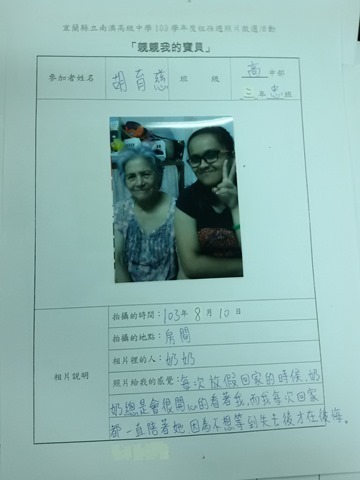 宜蘭縣立南澳高級中學103學年度祖孫週照片徵選活動
「親親我的寶貝」
參加者姓名 胡育慈 班級 高中部
三年忠班
拍攝的時間：103年8月10日
拍攝的地點：房間
相片裡的人：奶奶
相片說明 照片給我的感覺：每次放假回家的時候，奶
奶總是會很開心的看著我，而我每次回家
都一直陪著她，因為不想等到失去後才在後悔。